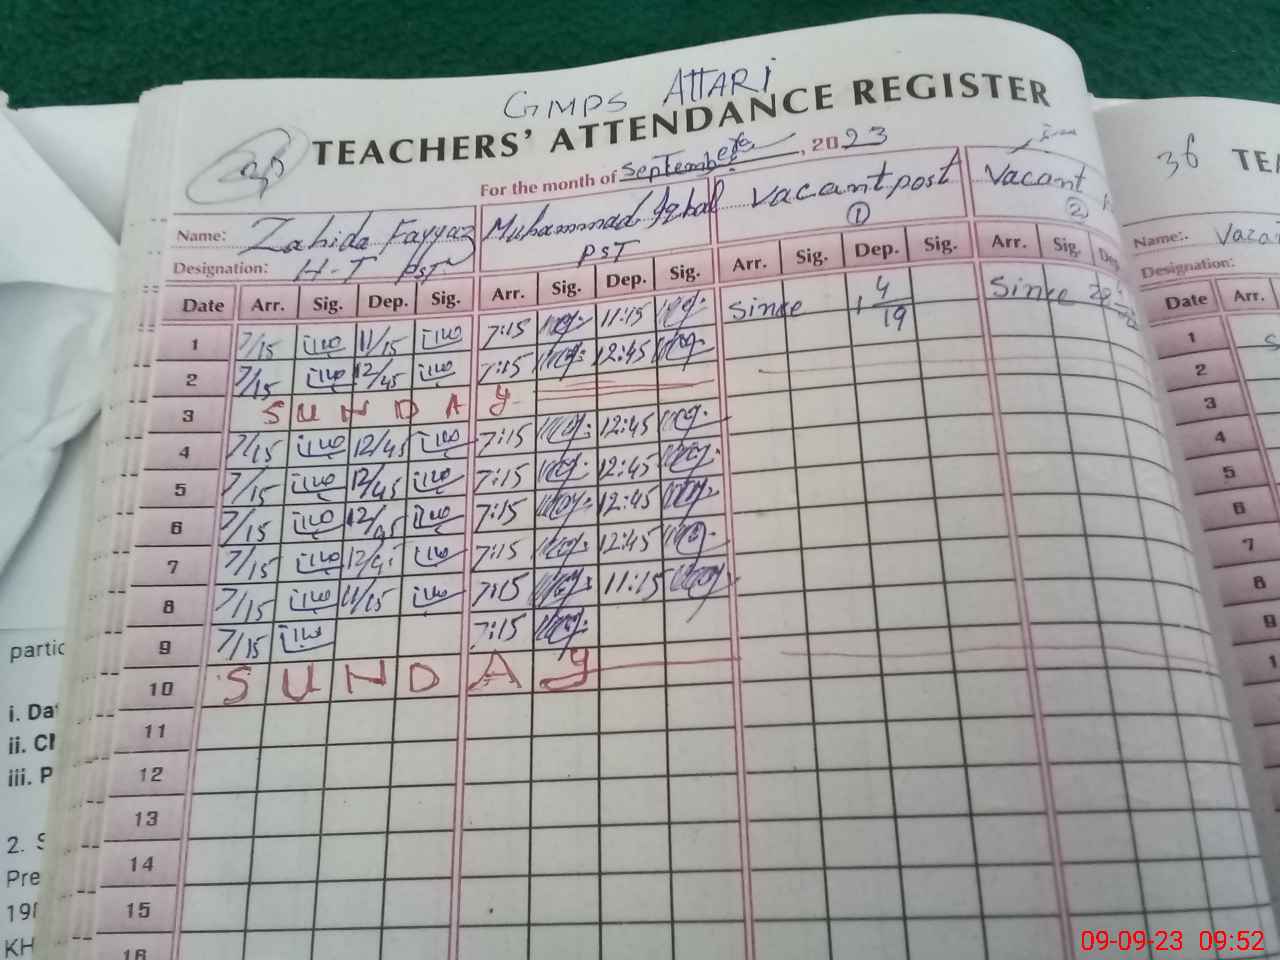 GMPS ATTARI
30
TEACHERS' ATTENDANCE REGISTER
For the month of September, 2023
Name: Zahida Fayyaz Muhammad Iqbal Vacant post Vacant
① ②
Designation: H-T PST PST
Date Arr. Sig. Dep. Sig. Arr. Sig. Dep. Sig. Arr. Sig. Dep. Sig. Arr. Sig. Dep
1 7/15 11/15 7:15 11:15 Since 4/19 Since
2 7/15 12/45 7:15 12:45
3 SUNDAY
4 7/15 12/45 7:15 12:45
5 7/15 12/45 7:15 12:45
6 7/15 12/45 7:15 12:45
7 7/15 7:15 12:45
8 7/15 11/15 7:15 11:15
9 7/15 7:15
10 SUNDAY
11
12
13
14
15
16
36 TEA
Name:
Designation:
Date Arr.
1
2
3
4
5
6
7
8
9
1
partic
i. Da
ii. CI
iii. P
2. S
Pre
KH
09-09-23 09:52